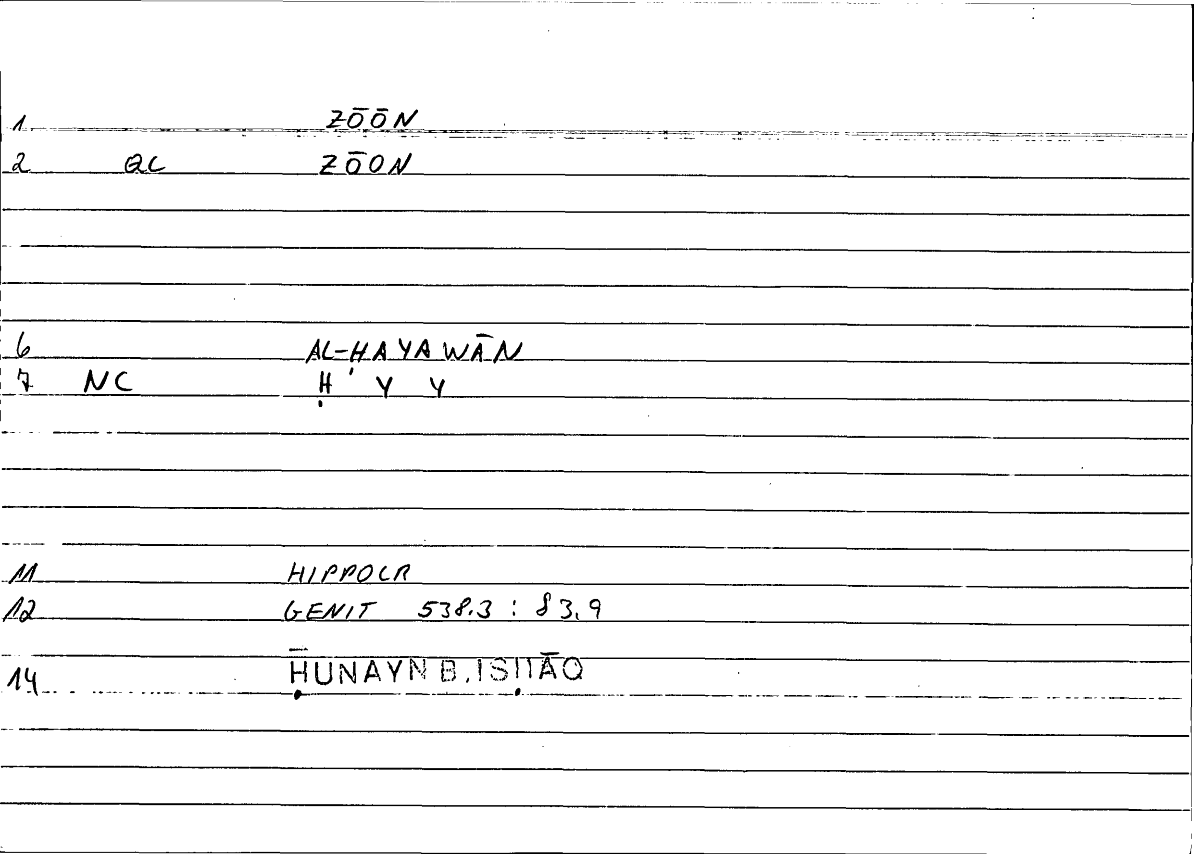 1 ZŌŌN
2 QC ZŌON
6 AL-ḤAYAWĀN
7 NC Ḥ Y Y
11 HIPPOCR
12 GENIT 538.3 : 83,9
14 ḤUNAYN B. ISḤĀQ